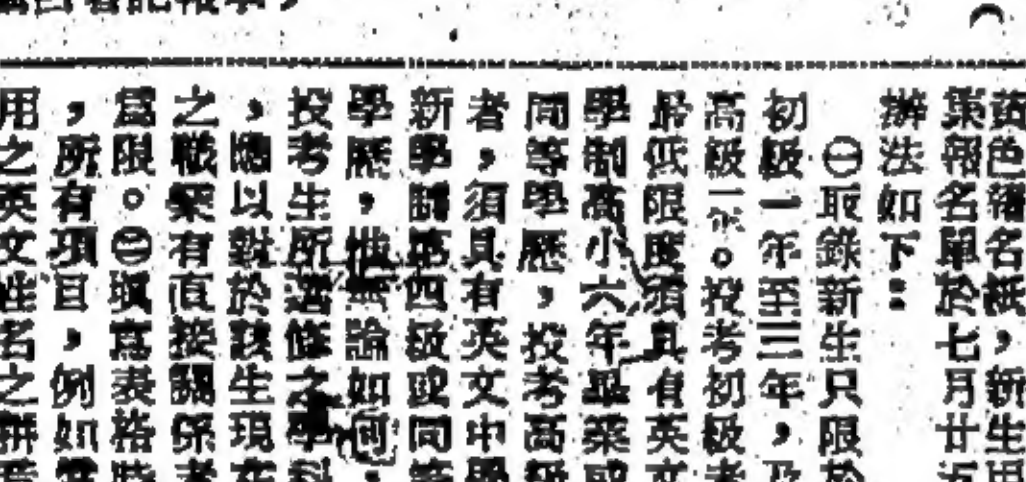 名紙，新生用
報名單於七月廿五
辦法如下：
㊀取錄新生只限於
初級一年至三年，及
高級一年。投考初級者
最低限度須具有英文
學制高小六年畢業或
同等學歷，投考高級
者，須具有英文中學
新學制第四級或同等
學歷，無論如何，
投考生所選修之學科
，應以對於該生現在
之職業有直接關係者
爲限。㊁填寫表格時
，所有項目，例如
用之英文姓名之拼音